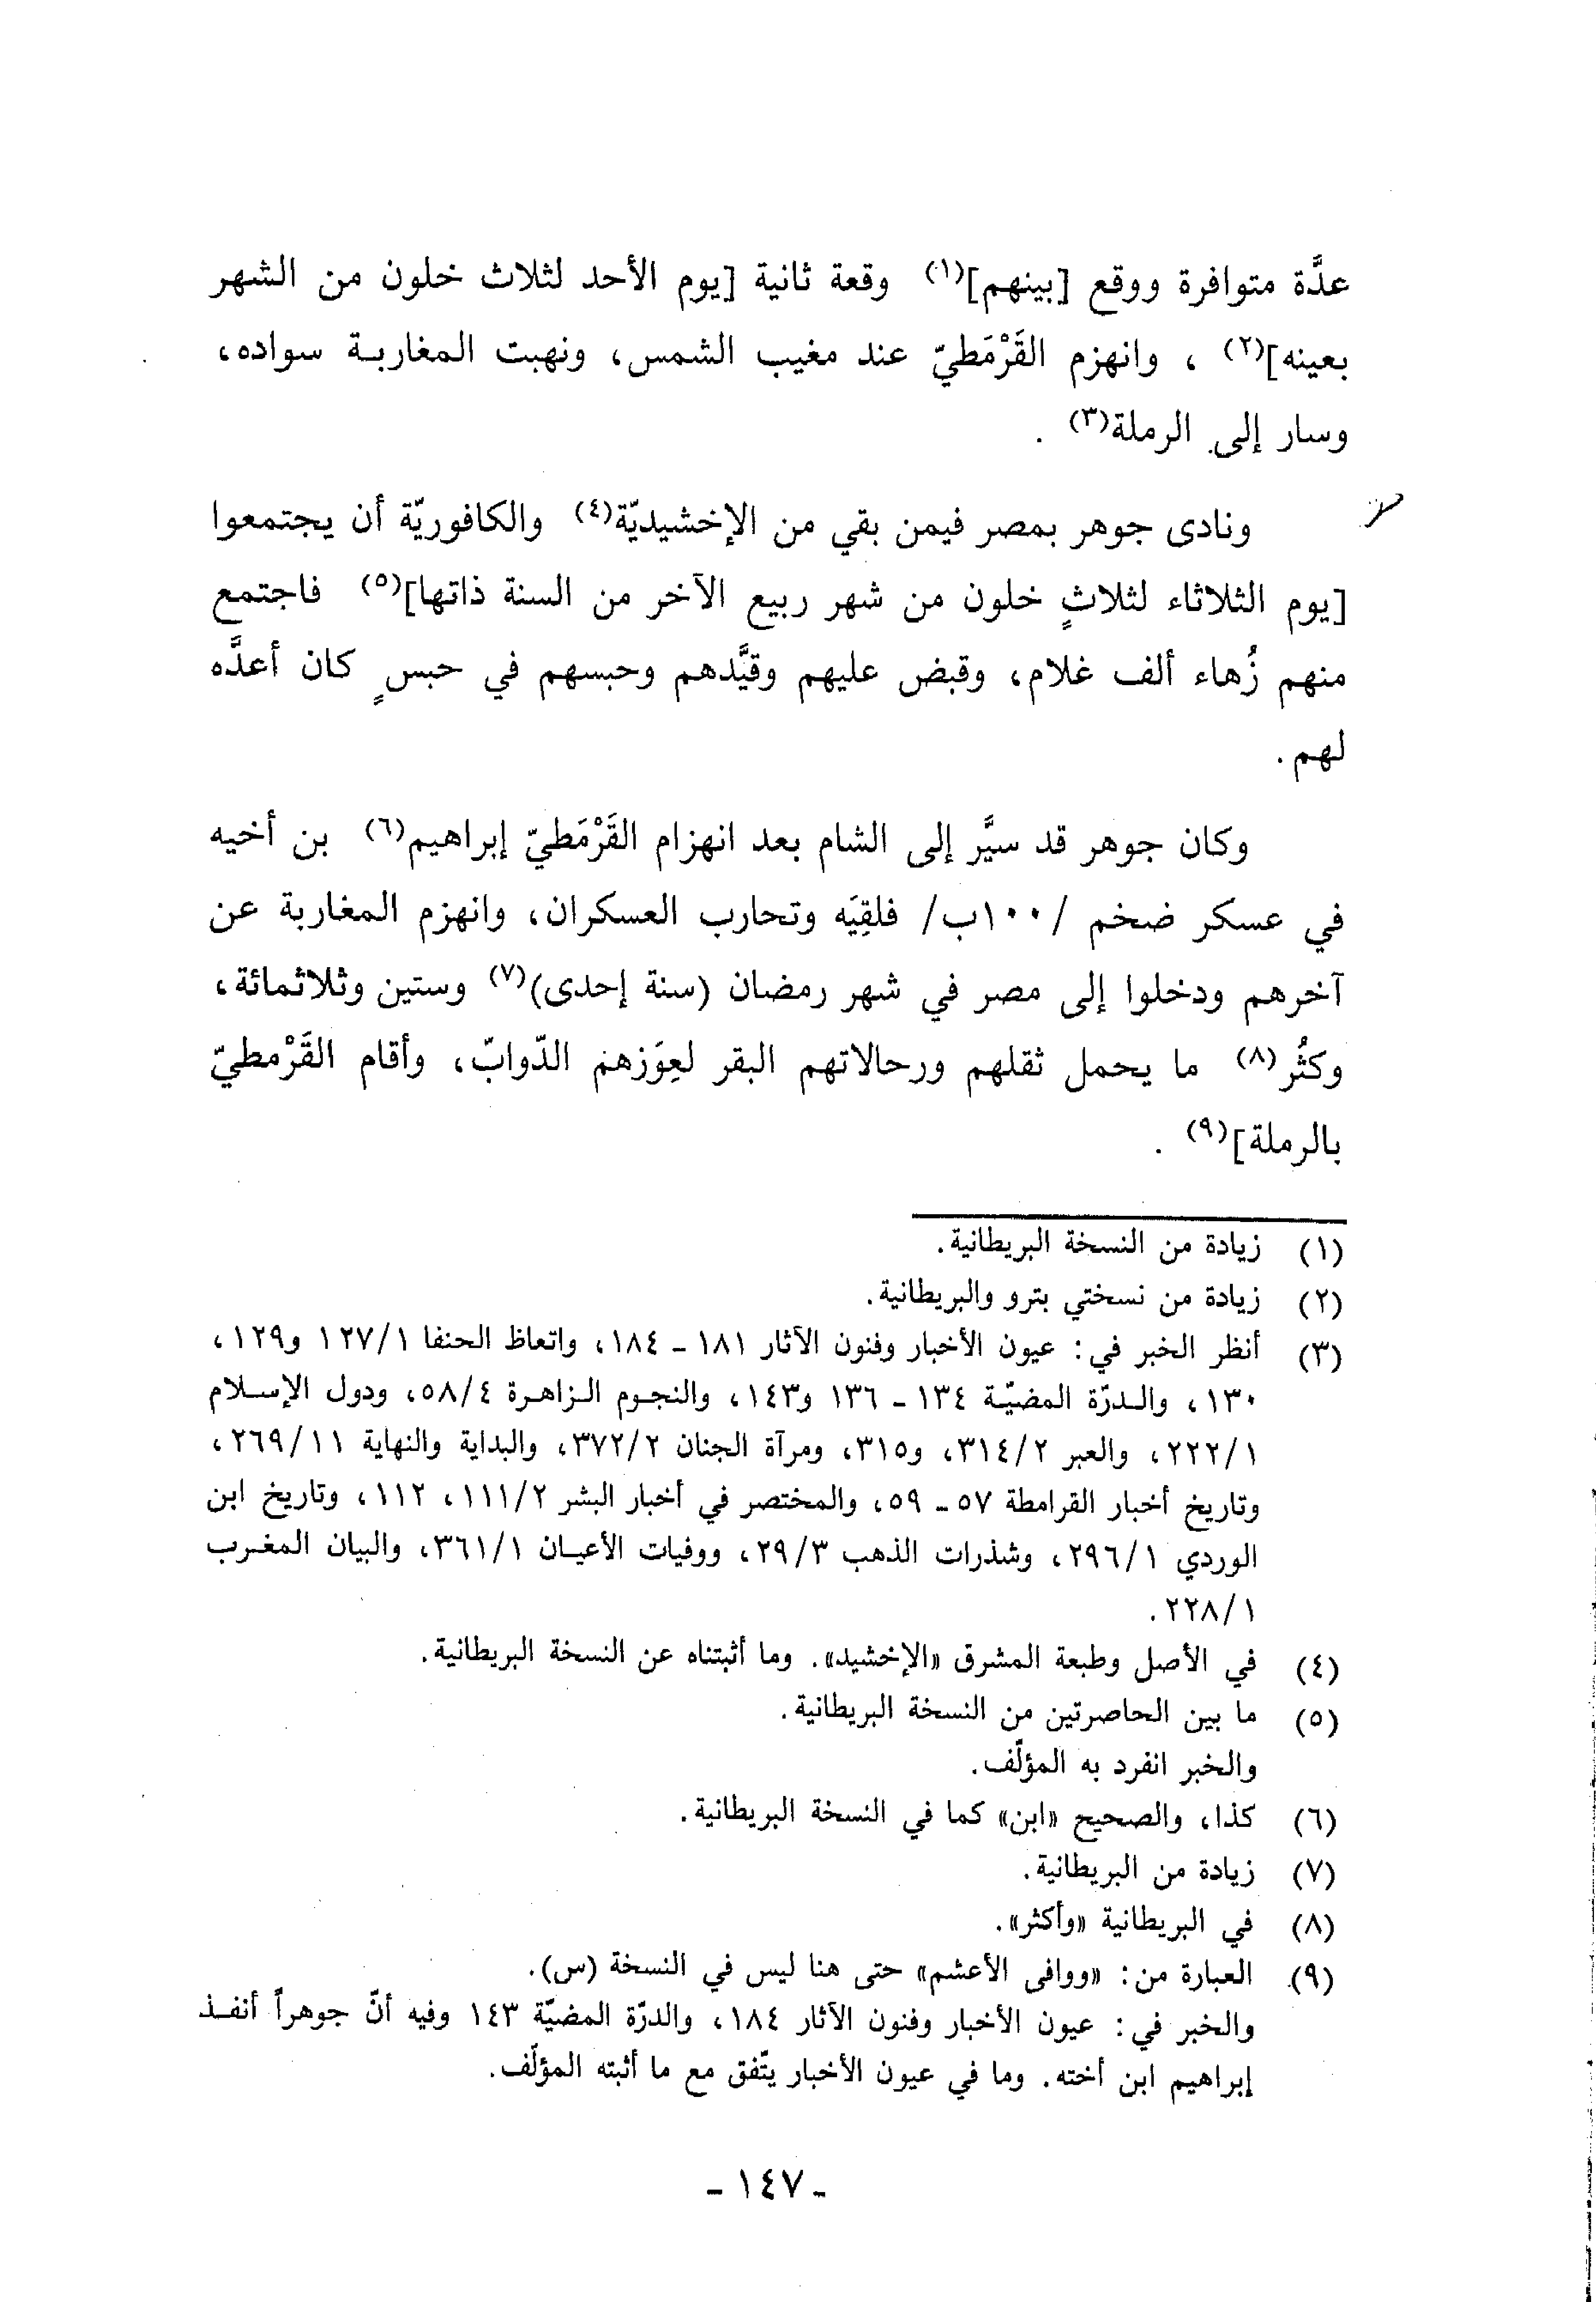 عدَّة متوافرة ووقع [بينهم](١) وقعة ثانية [يوم الأحد لثلاث خلون من الشهر
بعينه](٢) ، وانهزم القَرْمَطيّ عند مغيب الشمس، ونهبت المغاربـة سواده،
وسار إلى الرملة(٣) .
ونادى جوهر بمصر فيمن بقي من الإخشيديّة(٤) والكافوريّة أن يجتمعوا
[يوم الثلاثاء لثلاثٍ خلون من شهر ربيع الآخر من السنة ذاتها](٥) فاجتمع
منهم زُهاء ألف غلام، وقبض عليهم وقيَّدهم وحبسهم في حبسٍ كان أعدَّه
لهم.
وكان جوهر قد سيَّر إلى الشام بعد انهزام القَرْمَطيّ إبراهيم(٦) بن أخيه
في عسكر ضخم /١٠٠ب/ فلقِيَه وتحارب العسكران، وانهزم المغاربة عن
آخرهم ودخلوا إلى مصر في شهر رمضان (سنة إحدى)(٧) وستين وثلاثمائة،
وكثُر(٨) ما يحمل ثقلهم ورحالاتهم البقر لعِوَزهم الدّوابّ، وأقام القَرْمطيّ
بالرملة](٩) .
(١) زيادة من النسخة البريطانية.
(٢) زيادة من نسختي بترو والبريطانية.
(٣) أنظر الخبر في: عيون الأخبار وفنون الآثار ١٨١ - ١٨٤، واتعاظ الحنفا ١٢٧/١ و١٢٩،
١٣٠، والـدرّة المضيّـة ١٣٤ - ١٣٦ و١٤٣، والنجـوم الـزاهـرة ٥٨/٤، ودول الإسـلام
٢٢٢/١، والعبر ٣١٤/٢، و٣١٥، ومرآة الجنان ٣٧٢/٢، والبداية والنهاية ٢٦٩/١١،
وتاريخ أخبار القرامطة ٥٧ - ٥٩، والمختصر في أخبار البشر ١١١/٢، ١١٢، وتاريخ ابن
الوردي ٢٩٦/١، وشذرات الذهب ٢٩/٣، ووفيات الأعيـان ٣٦١/١، والبيان المغـرب
٢٢٨/١.
(٤) في الأصل وطبعة المشرق «الإخشيد». وما أثبتناه عن النسخة البريطانية.
(٥) ما بين الحاصرتين من النسخة البريطانية.
والخبر انفرد به المؤلّف.
(٦) كذا، والصحيح «ابن» كما في النسخة البريطانية.
(٧) زيادة من البريطانية.
(٨) في البريطانية «وأكثر».
(٩) العبارة من: «ووافى الأعشم» حتى هنا ليس في النسخة (س).
والخبر في: عيون الأخبار وفنون الآثار ١٨٤، والدرّة المضيّة ١٤٣ وفيه أنّ جوهراً أنفـذ
إبراهيم ابن أخته. وما في عيون الأخبار يتّفق مع ما أثبته المؤلّف.
- ١٤٧ -